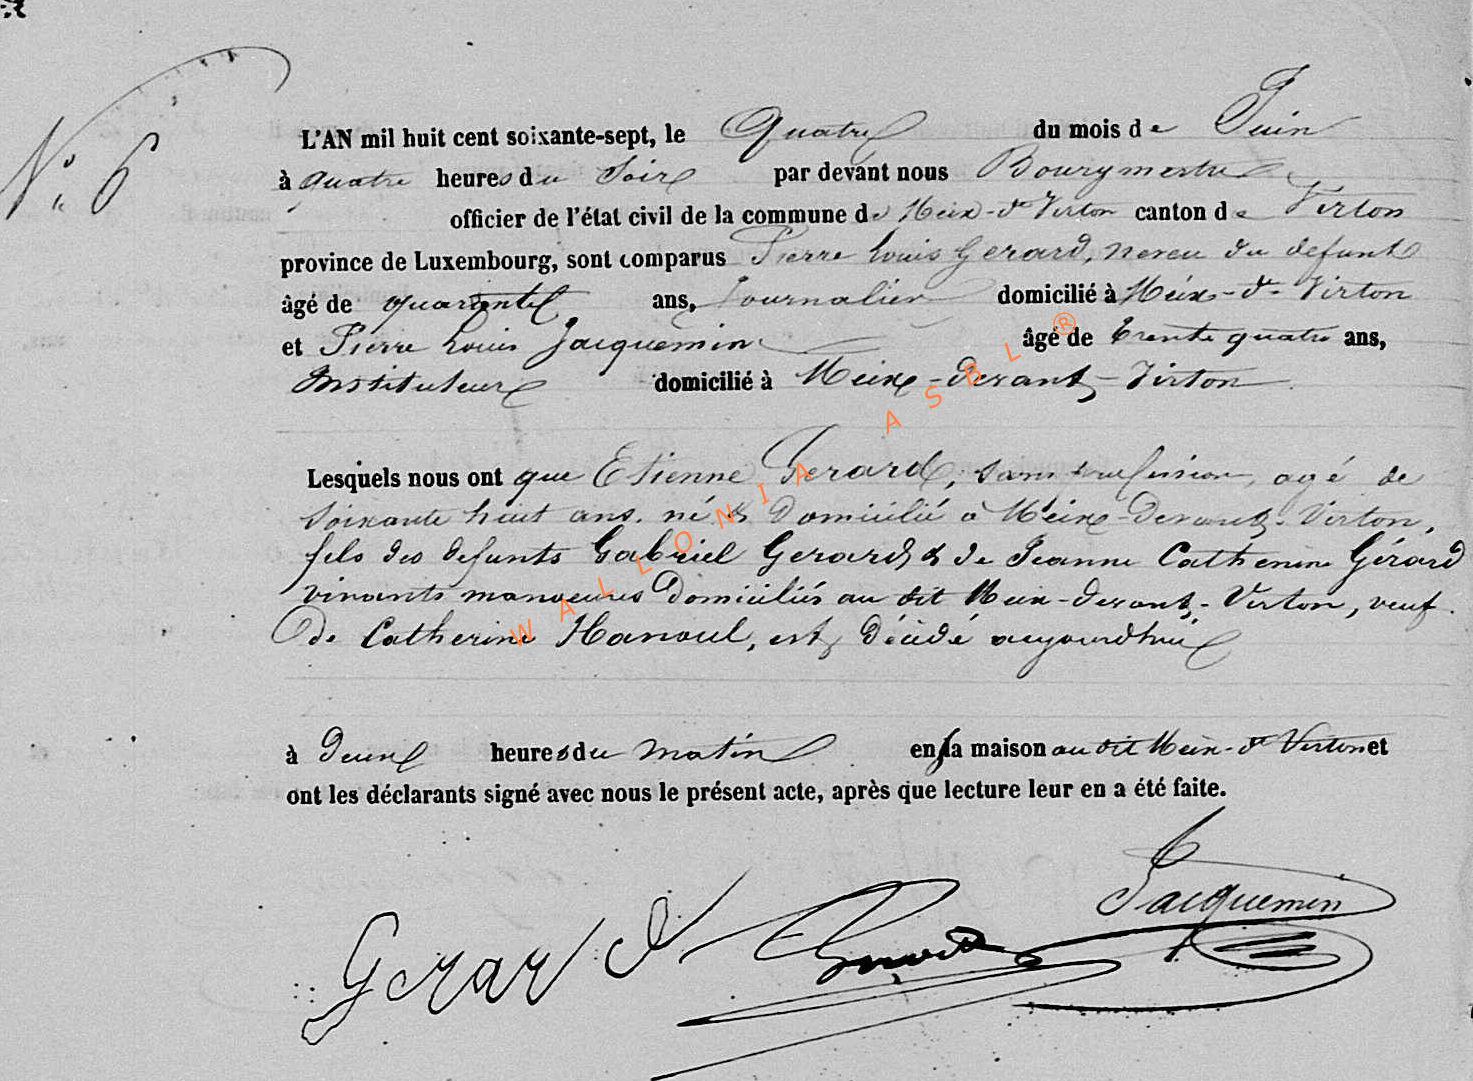 N° 6
L'AN mil huit cent soixante-sept, le Quatre du mois de Juin
à quatre heures du Soir par devant nous Bourgmestre
officier de l'état civil de la commune de Meix-dt Virton canton de Virton
province de Luxembourg, sont comparus Pierre Louis Gerard, neveu du defunt
âgé de quarante ans, Journalier domicilié à Meix-dt-Virton
et Pierre Louis Jacquemin âgé de trente quatre ans,
Instituteur domicilié à Meix-devant-Virton
Lesquels nous ont que Etienne Gerard, sans profession, agé de
soixante huit ans. né & domicilié à Meix-Devant-Virton,
fils des defunts Gabriel Gerard & de Jeanne Catherine Gérard
vivants manoeuvres domiciliés au dit Meix-devant-Virton, veuf
de Catherine Hanoul, est décédé aujourdhui
à deux heures du matin en sa maison au dit Meix-dt Virton et
ont les déclarants signé avec nous le présent acte, après que lecture leur en a été faite.
Jacquemin
Gerard
WALLONIA ASBL ®